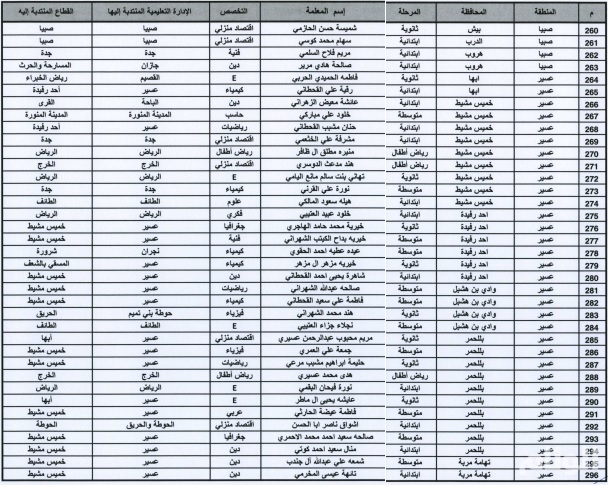 م المنطقة المحافظة المرحلة إسم المعلمة التخصص الإدارة التعليمية المنتدبة إليها القطاع المنتدبة إليه
260 صبيا بيش ثانوية شميسة حسن الحازمي اقتصاد منزلي صبيا صبيا
261 صبيا الدرب ابتدائية سهام محمد كوسي اقتصاد منزلي صبيا صبيا
262 صبيا هروب ابتدائية مريم فلاح السلمي فنية جدة جدة
263 صبيا هروب ابتدائية صالحة هادي مرير دين جازان المسارحة والحرث
264 عسير ابها ثانوية فاطمه الحميدي الحربي E القصيم رياض الخبراء
265 عسير ابها ابتدائية رقية علي القحطاني كيمياء عسير أحد رفيدة
266 عسير خميس مشيط ابتدائية عائشة معيض الزهراني دين الباحة القرى
267 عسير خميس مشيط متوسطة خلود علي مباركي حاسب المدينة المنورة المدينة المنورة
268 عسير خميس مشيط ابتدائية حنان مشبب القحطاني رياضيات عسير أحد رفيدة
269 عسير خميس مشيط ابتدائية مشرفة علي الخثعمي اقتصاد منزلي جدة جدة
270 عسير خميس مشيط رياض أطفال منيره مطلق ال ظافر رياض أطفال الرياض الرياض
271 عسير خميس مشيط رياض أطفال هند مدعث الدوسري اقتصاد منزلي الخرج الخرج
272 عسير خميس مشيط ثانوية تهاني بنت سالم مانع اليامي E الرياض الرياض
273 عسير خميس مشيط متوسطة نورة علي القرني كيمياء جدة جدة
274 عسير خميس مشيط ابتدائية هيله سعود المالكي علوم الطائف الطائف
275 عسير احد رفيدة ابتدائية خلود عبيد العتيبي فكري الرياض الرياض
276 عسير احد رفيدة ثانوية خيرية محمد حامد الهاجري جغرافيا عسير خميس مشيط
277 عسير احد رفيدة متوسطة خيريه بداح الكبتب الشهراني فنية عسير خميس مشيط
278 عسير احد رفيدة متوسطة عبده عطيه احمد الحقوي كيمياء نجران شرورة
279 عسير احد رفيدة ثانوية خيريه مزهر ال مزهر كيمياء عسير المسقي بالشعف
280 عسير احد رفيدة ابتدائية شاهرة يحيى احمد القحطاني دين عسير خميس مشيط
281 عسير وادي بن هشبل متوسطة صالحه عبدالله الشهراني رياضيات عسير خميس مشيط
282 عسير وادي بن هشبل متوسطة فاطمة علي سعيد القحطاني كيمياء عسير خميس مشيط
283 عسير وادي بن هشبل ثانوية هند محمد الشهراني فيزياء حوطة بني تميم الحريق
284 عسير وادي بن هشبل متوسطة نجلاء جزاء العتيبي E الطائف الطائف
285 عسير بللحمر ثانوية مريم محبوب عبدالرحمن عسيري اقتصاد منزلي عسير أبها
286 عسير بللحمر متوسطة جمعة علي العمري فيزياء عسير خميس مشيط
287 عسير بللحمر متوسطة حليمة ابراهيم مشبب مرعي رياضيات عسير خميس مشيط
288 عسير بللحمر رياض أطفال هدى محمد عسيري رياض أطفال الخرج الخرج
289 عسير بللحمر ابتدائية نورة فيحان البقمي E الرياض الرياض
290 عسير بللحمر ثانوية عايشه يحيى ال ماطر E عسير أبها
291 عسير بللحمر متوسطة فاطمة عيضة الحارثي عربي عسير خميس مشيط
292 عسير بللحمر ابتدائية اشواق ناصر ابا الحسن اقتصاد منزلي الحوطة والحريق الحوطة
293 عسير بللحمر متوسطة صالحه سعيد احمد محمد الاحمري جغرافيا عسير خميس مشيط
294 عسير بللحمر ابتدائية منال سعيد احمد كوتي دين عسير خميس مشيط
295 عسير تهامة مربة متوسطة شمعه علي عبدالله آل جندب دين عسير خميس مشيط
296 عسير تهامة مربة ابتدائية تانهة عيسى المخرمي دين عسير خميس مشيط